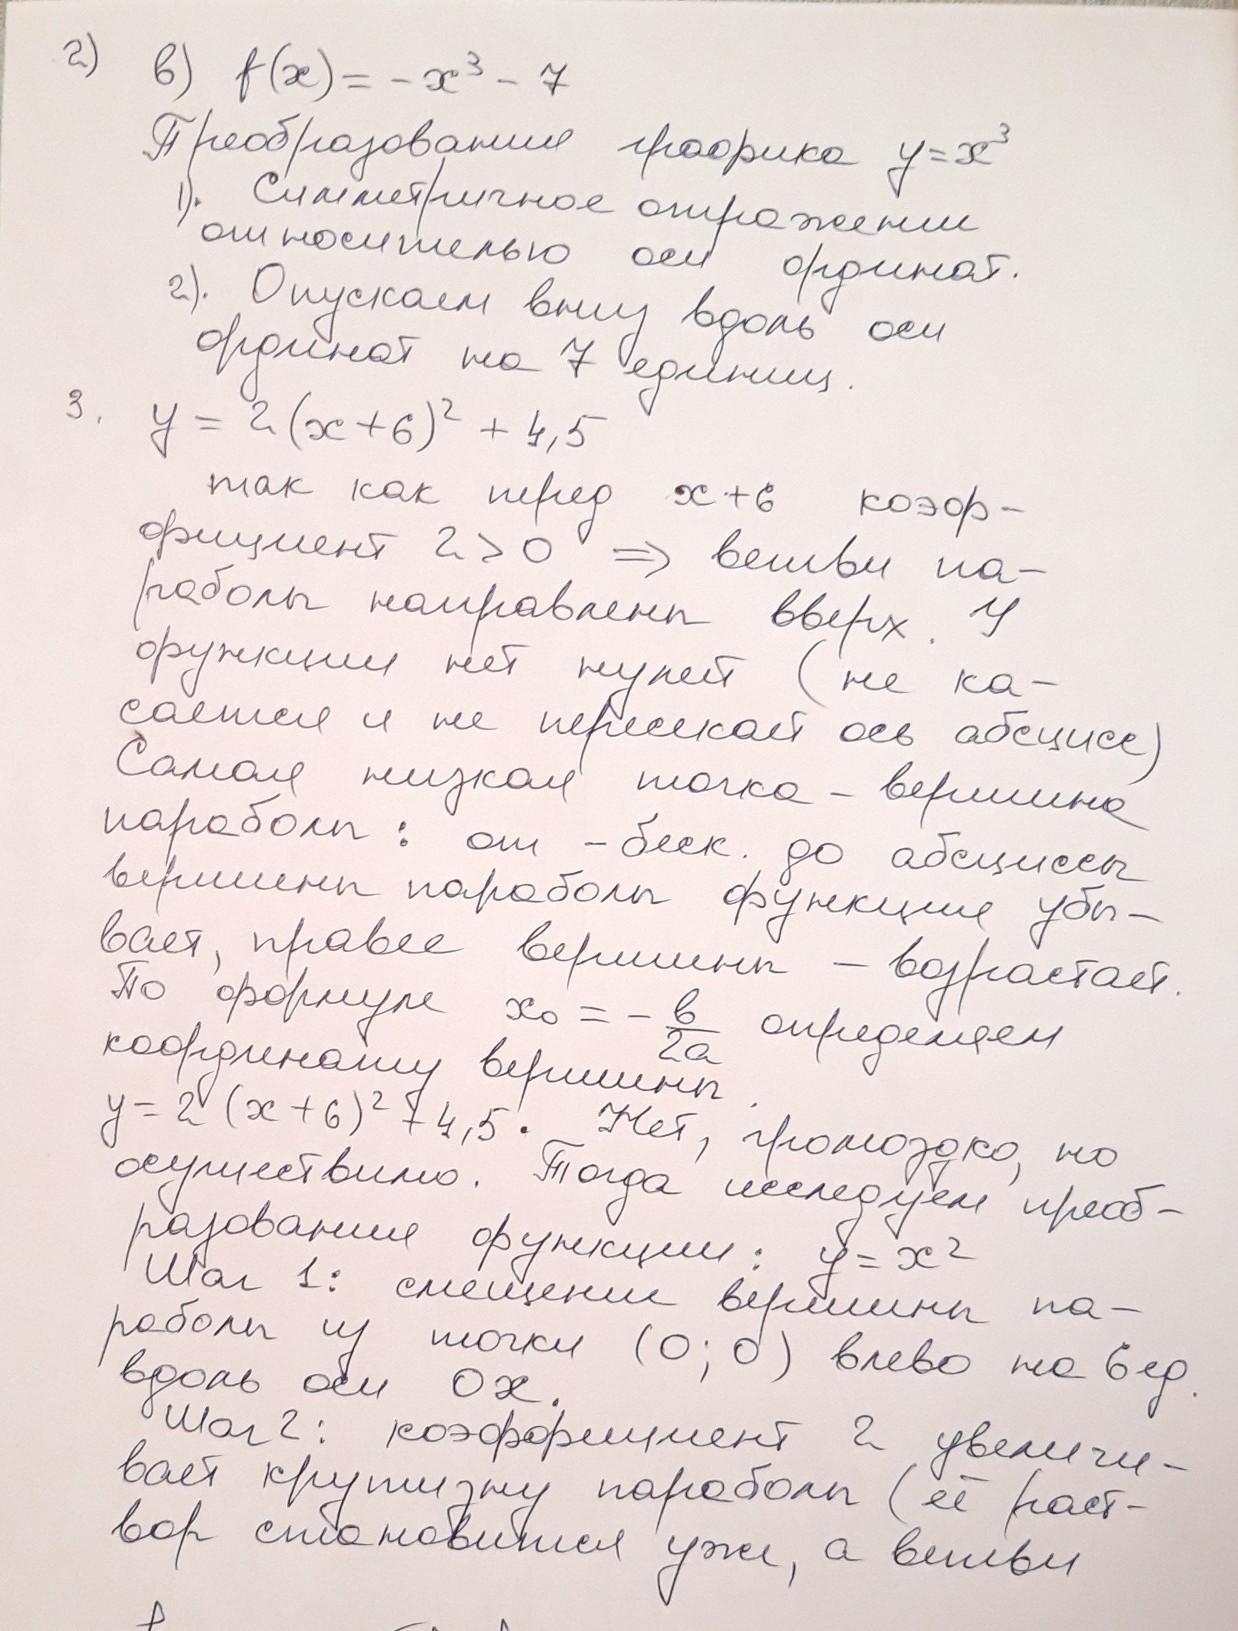 2) в) f(x) = -x³ - 7
Преобразования графика y=x³
1). Симметричное отражение
относительно оси ординат.
2). Опускаем вниз вдоль оси
ординат на 7 единиц.
3. y = 2(x+6)² + 4,5
так как перед x+6 коэф-
фициент 2>0 => ветви па-
раболы направлены вверх. У
функции нет нулей (не ка-
сается и не пересекает ось абсцисс)
Самая низкая точка - вершина
параболы: от -беск. до абсциссы
вершины параболы функция убы-
вает, правее вершины - возрастает.
По формуле x₀ = - в/2a определяем
координату вершины.
y=2(x+6)² + 4,5. Нет, громоздко, но
осуществимо. Тогда исследуем преоб-
разования функции: y=x²
Шаг 1: смещение вершины па-
раболы из точки (0; 0) влево на 6 ед.
вдоль оси OX.
Шаг 2: коэффициент 2 увеличи-
вает крутизну параболы (её раст-
вор становится уже, а ветви